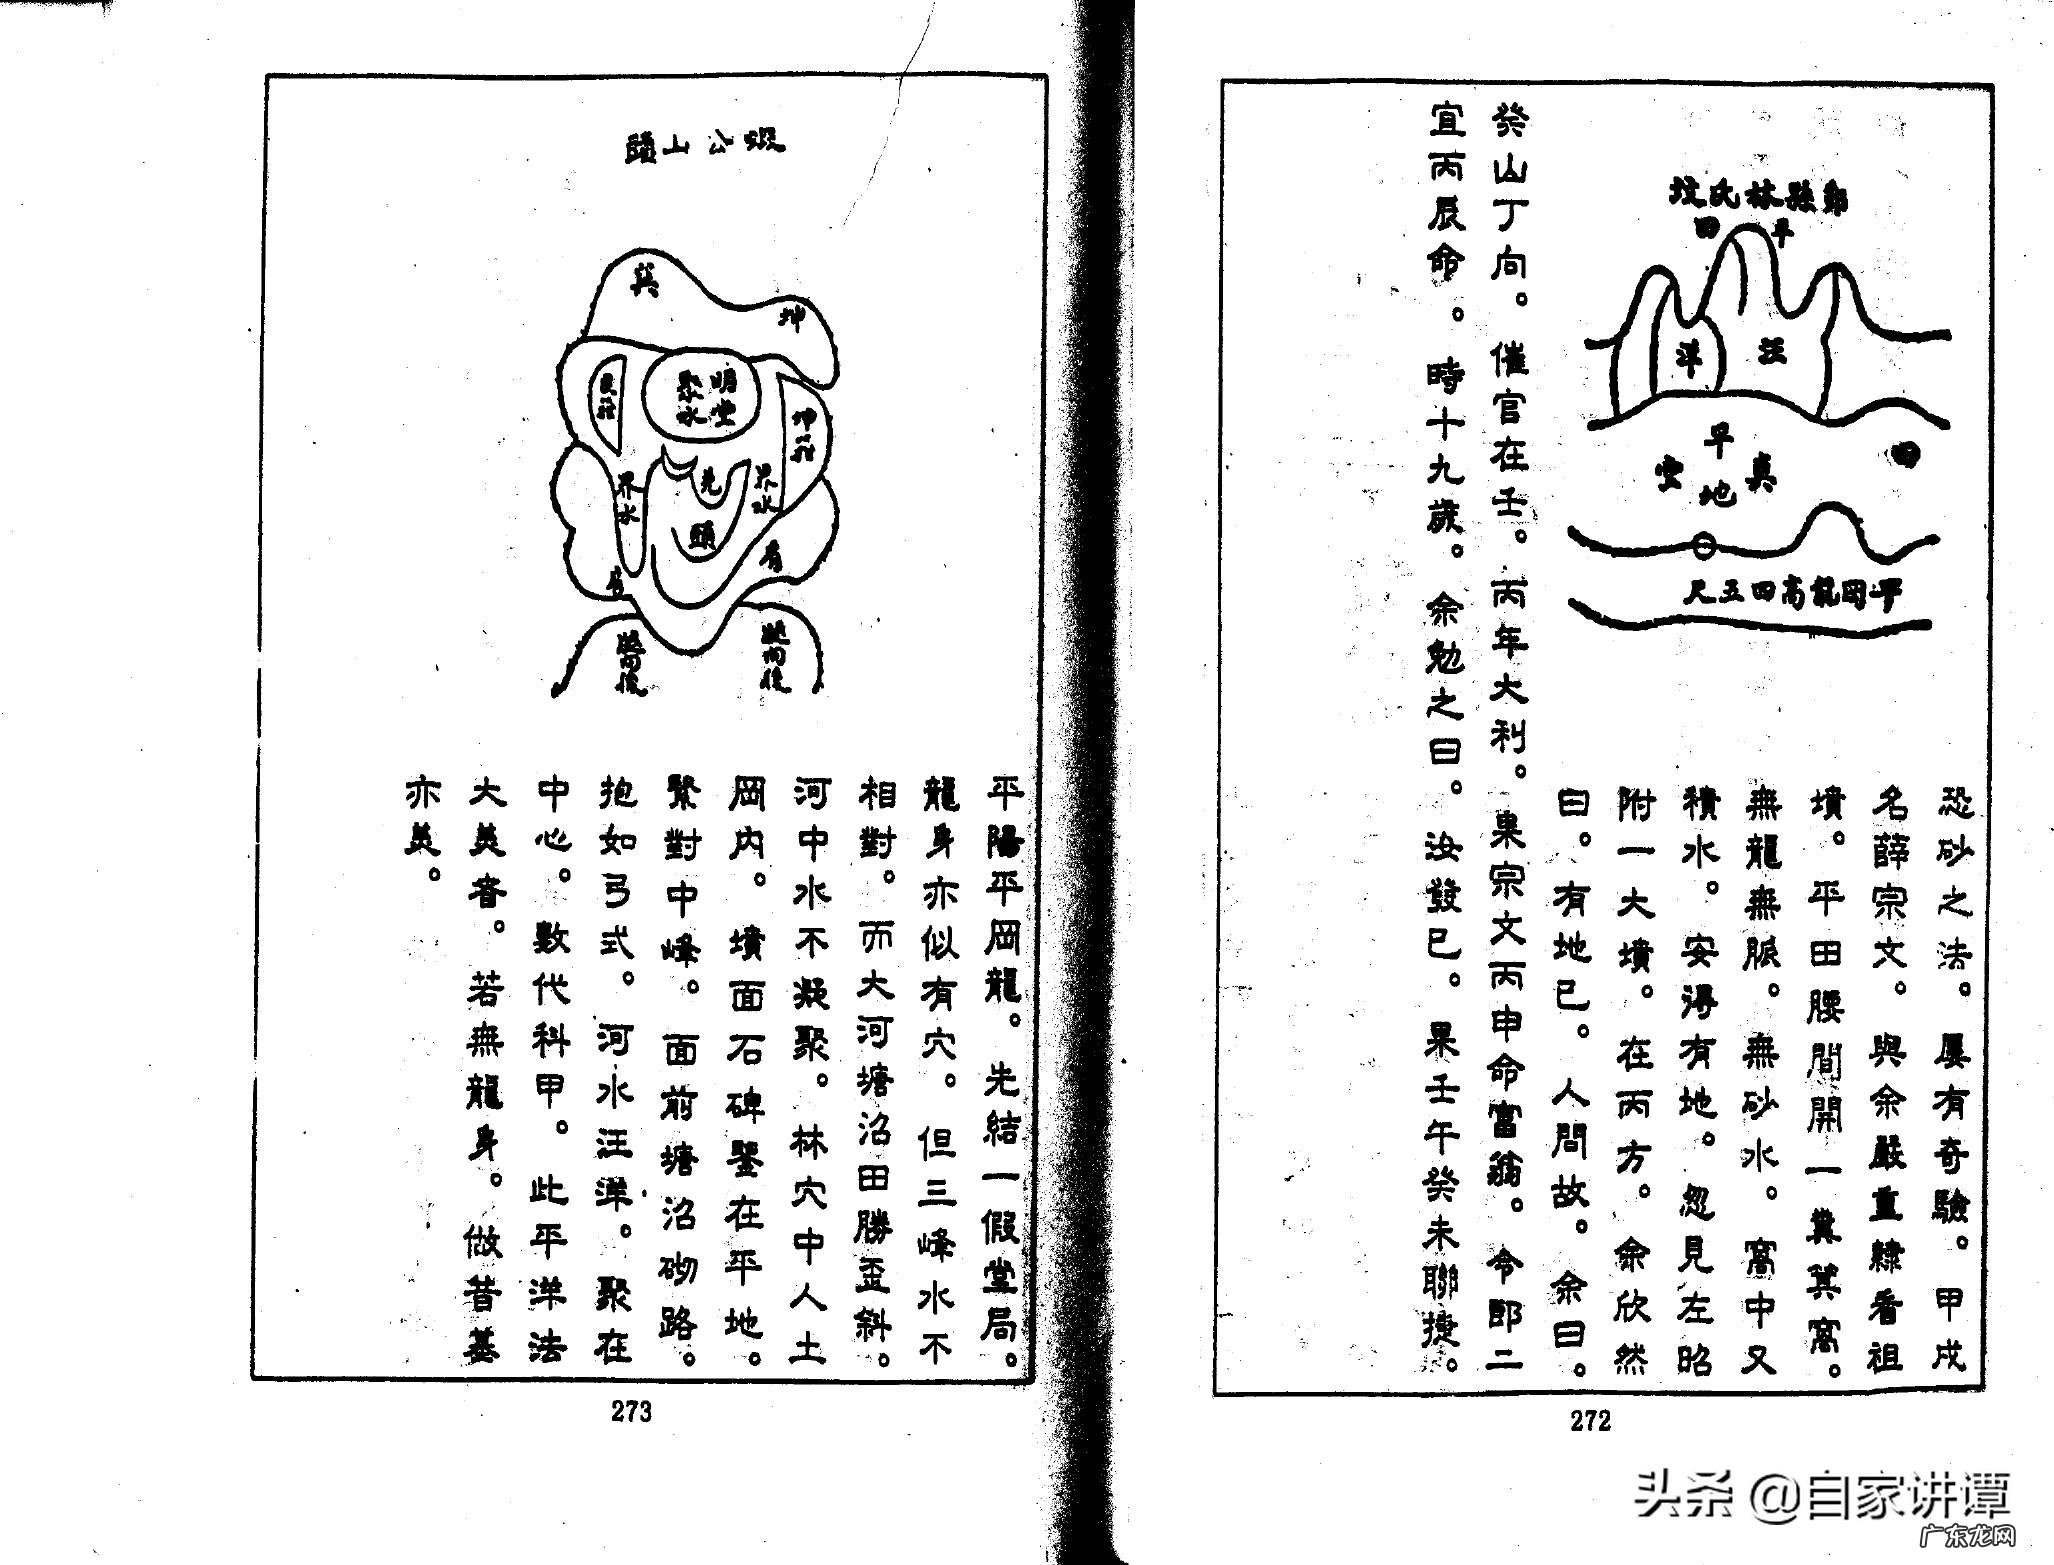 鄞縣林氏坟
平田
汪洋
平地
真
田
平岡龍高四五尺
恐砂之法。屢有奇驗。甲戌
名薛宗文。與余嚴重隸看祖
墳。平田腰間開一糞箕窩。
無龍無脈。無砂水。窩中又
積水。安得有地。忽見左昭
附一大墳。在丙方。余欣然
曰。有地已。人間故。余曰。
癸山丁向。催官在壬。丙年大利。果宗文丙申命富翁。令郎二
宜丙辰命。時十九歲。余勉之曰。汝發已。果壬午癸未聯捷。
272
蝦公山頭
巽
坤
明堂
聚水
坤砂
艮砂
界水
界水
頭
平陽平岡龍。先結一假堂局。
龍身亦似有穴。但三峰水不
相對。而大河塘沼田勝歪斜。
河中水不凝聚。林穴中人土
岡內。墳面石碑豎在平地。
緊對中峰。面前塘沼砌路。
抱如弓式。河水汪洋。聚在
中心。數代科甲。此平洋法
大美者。若無龍身。做昔基
亦美。
273
头条 @自家讲谭
广东龙网